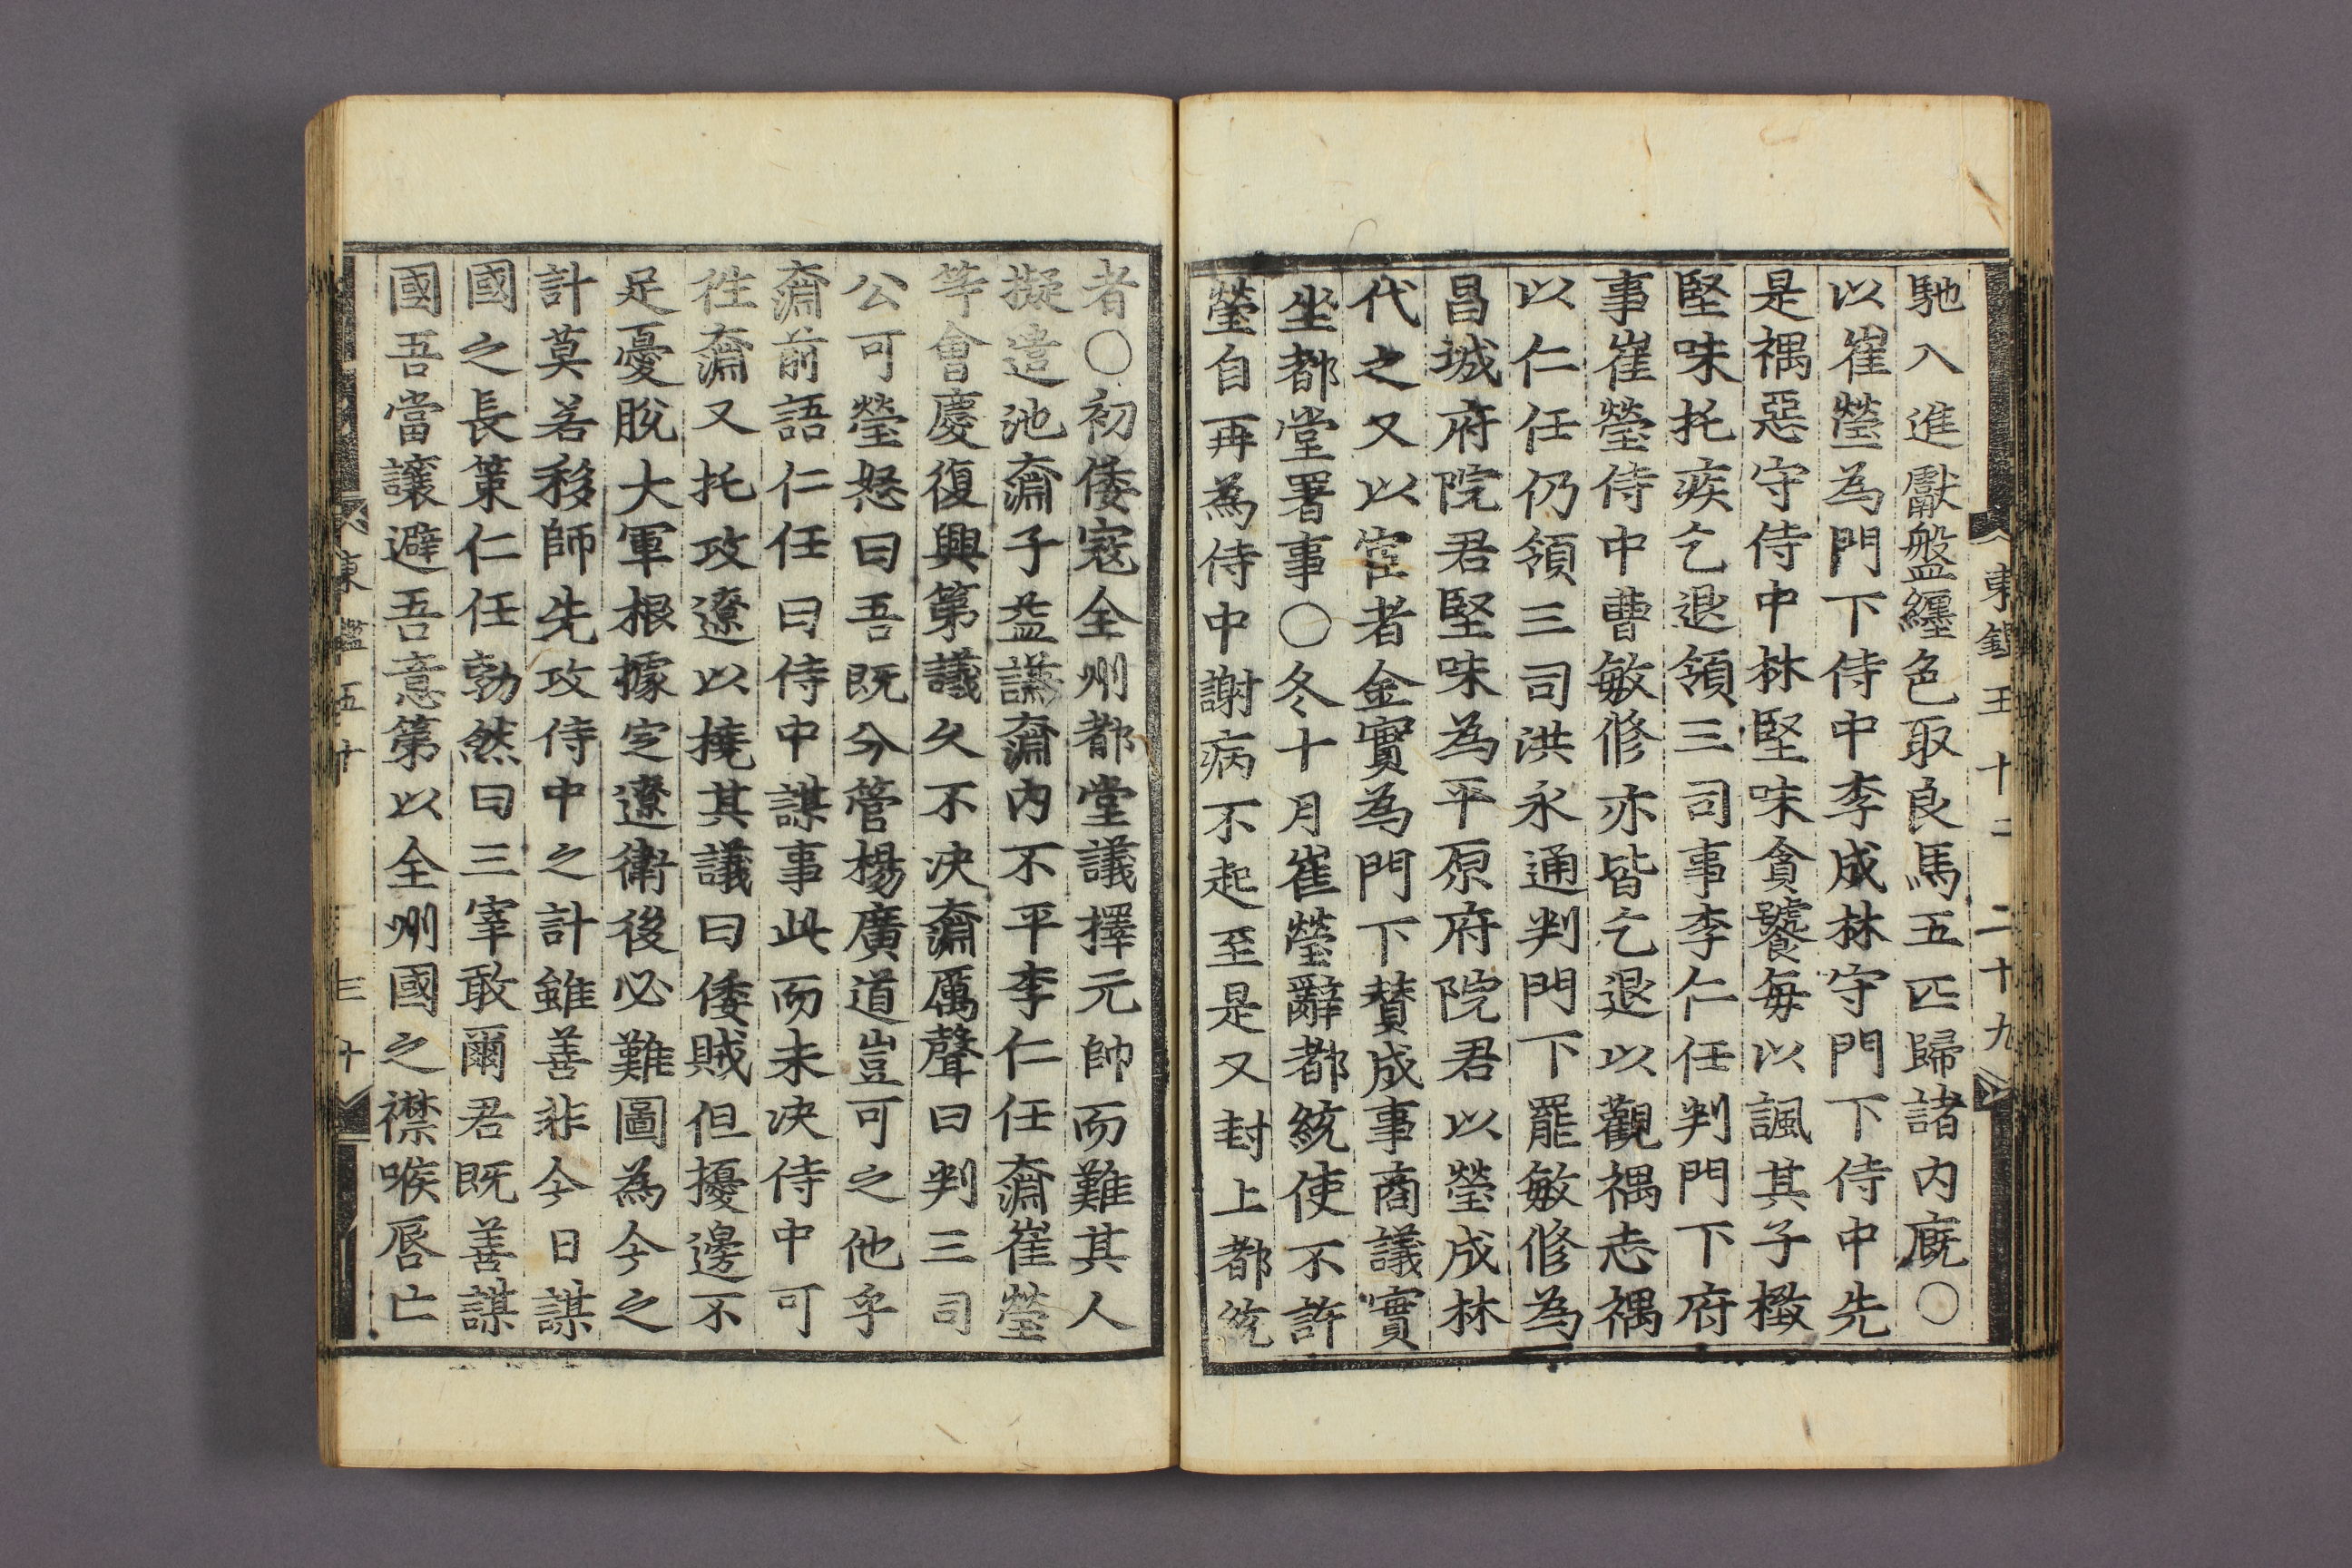 東鑑五十二 二十九
馳入進獻盤纏色取良馬五匹歸諸內廐〇
以崔瑩為門下侍中李成林守門下侍中先
是禑惡守侍中林堅味貪饕每以諷其子樆
堅味托疾乞退領三司事李仁任判門下府
事崔瑩侍中曹敏修亦皆乞退以觀禑志禑
以仁任仍領三司洪永通判門下罷敏修為
昌城府院君堅味為平原府院君以瑩成林
代之又以宦者金實為門下贊成事商議實
坐都堂署事〇冬十月崔瑩辭都統使不許
瑩自再為侍中謝病不起至是又封上都統
者〇初倭寇全州都堂議擇元帥而難其人
擬遣池奫子益謙奫內不平李仁任奫崔瑩
等會慶復興第議久不决奫厲聲曰判三司
公可瑩怒曰吾既分管楊廣道豈可之他乎
奫前語仁任曰侍中謀事此而未决侍中可
徃奫又托攻遼以撓其議曰倭賊但擾邊不
足憂脫大軍根據定遼衛後必難圖為今之
計莫若移師先攻侍中之計雖善非今日謀
國之長策仁任勃然曰三宰敢爾君既善謀
國吾當讓避吾意第以全州國之襟喉唇亡
東鑑五十 三十